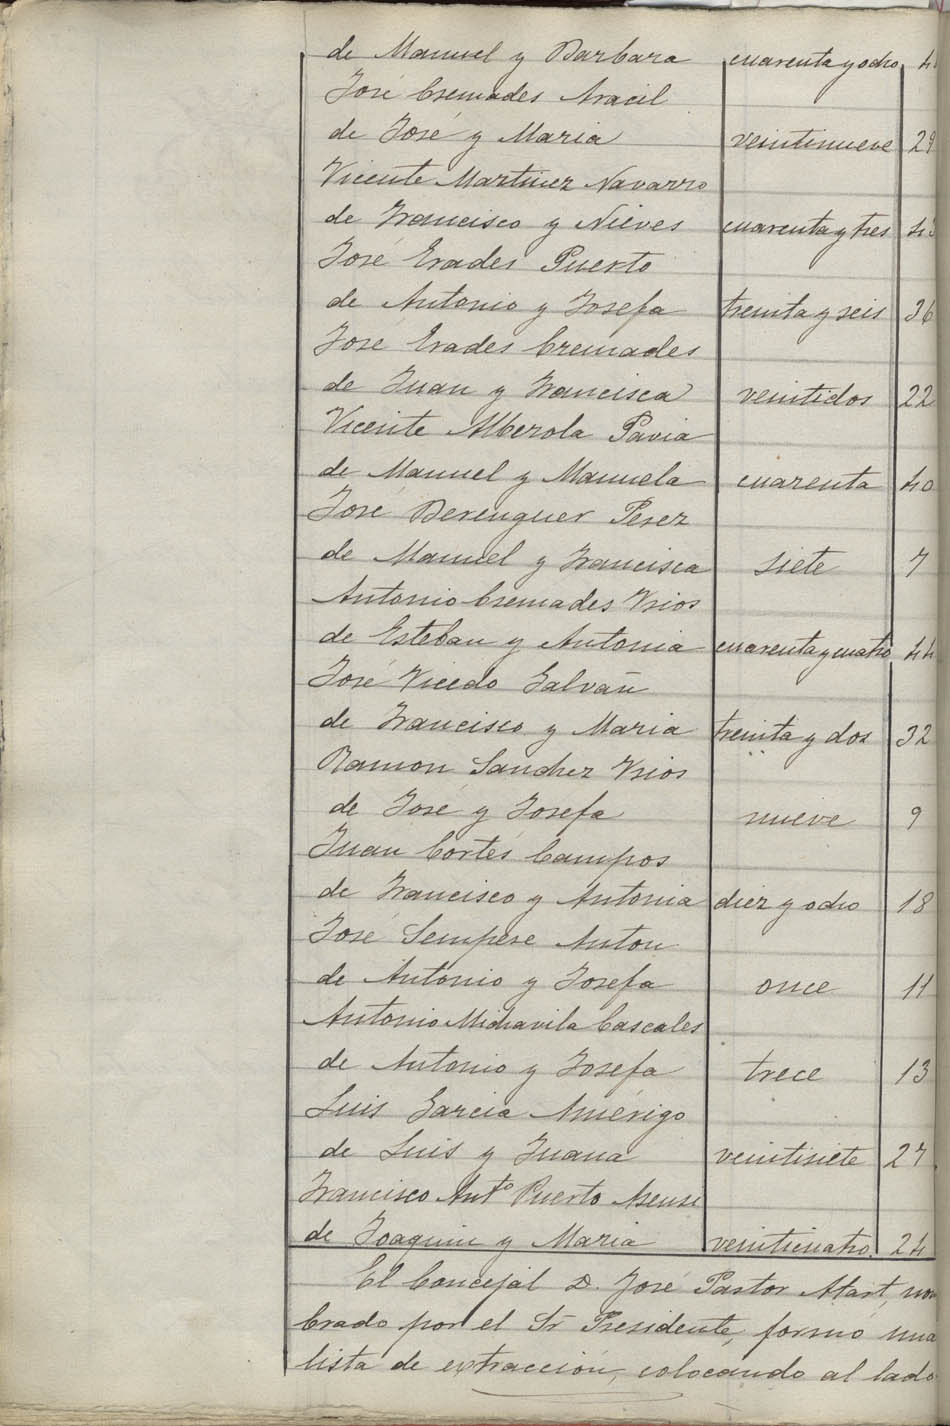 de Manuel y Barbara cuarenta y ocho 4
José Cremades Aracil
de José y Maria veintinueve 29
Vicente Martinez Navarro
de Francisco y Nieves cuarenta y tres 43
José Erades Puerto
de Antonio y Josefa treinta y seis 36
José Erades Cremades
de Juan y Francisca veintidos 22
Vicente Alberola Pavia
de Manuel y Manuela cuarenta 40
José Berenguer Perez
de Manuel y Francisca siete 7
Antonio Cremades Vrios
de Esteban y Antonia cuarenta y cuatro 44
José Vicedo Galvañ
de Francisco y Maria treinta y dos 32
Ramon Sanchez Vrios
de José y Josefa nueve 9
Juan Cortés Campos
de Francisco y Antonia diez y ocho 18
José Sempere Anton
de Antonio y Josefa once 11
Antonio Michavila Cascales
de Antonio y Josefa trece 13
Luis Garcia Amérigo
de Luis y Juana veintisiete 27
Francisco Antº Puerto Asensi
de Joaquin y Maria veinticuatro. 24
El Concejal D. José Pastor Mart, nom
brado por el Sr Presidente, formó una
lista de extracción, colocando al lado